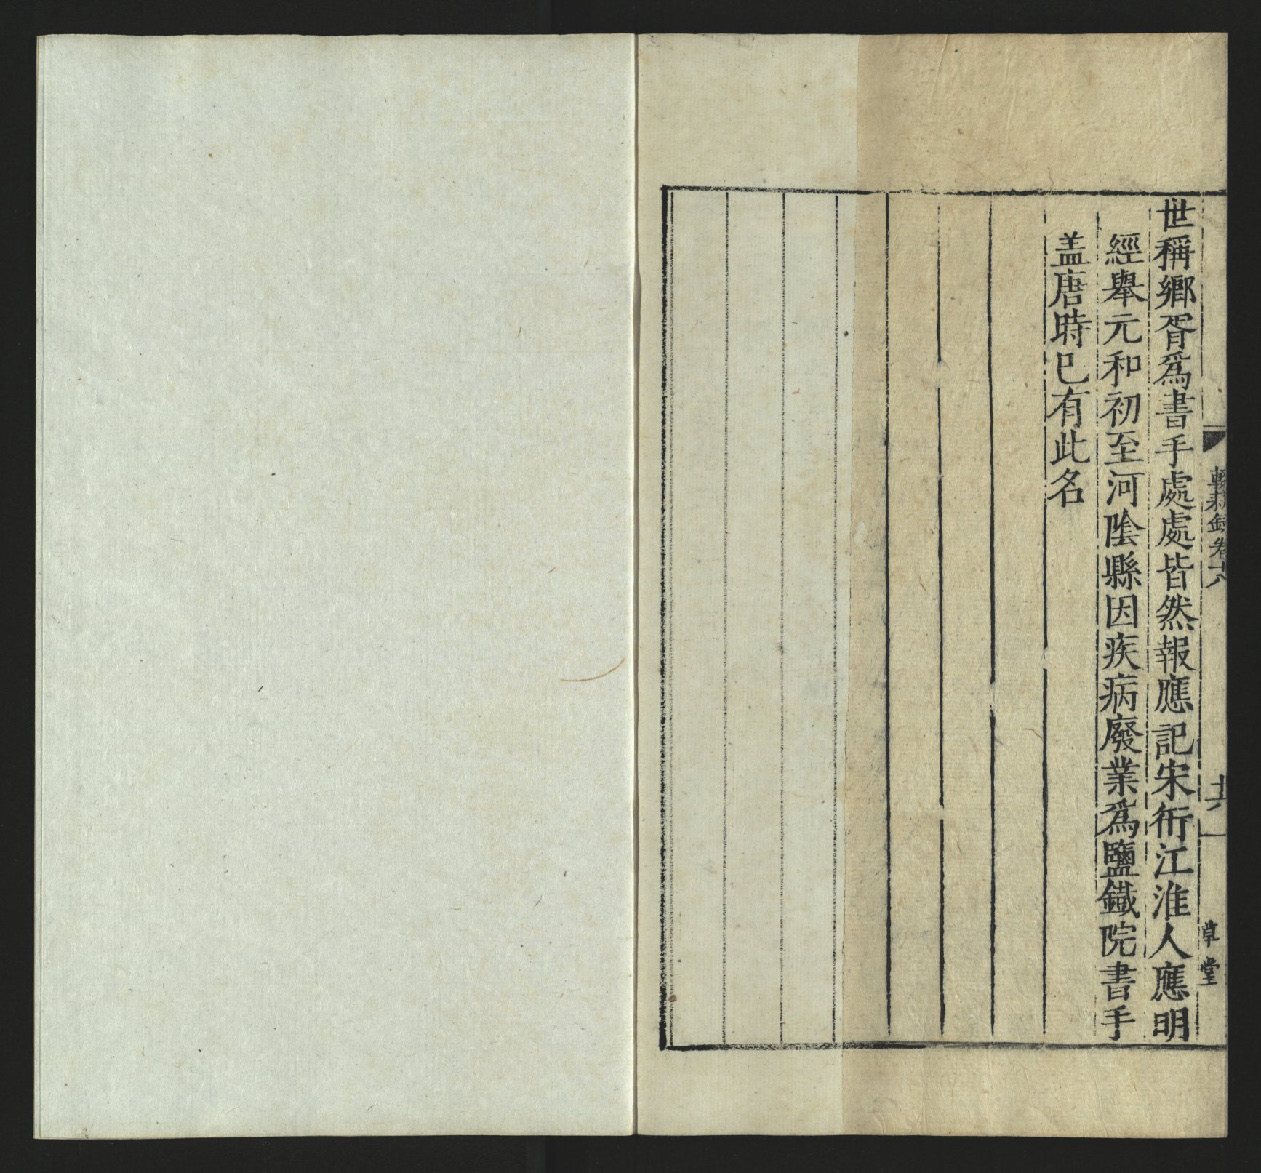 世稱鄉胥爲書手處處皆然報應記宋衎江淮人應明
經舉元和初至河陰縣因疾病廢業爲鹽鐵院書手
盖唐時已有此名
草堂